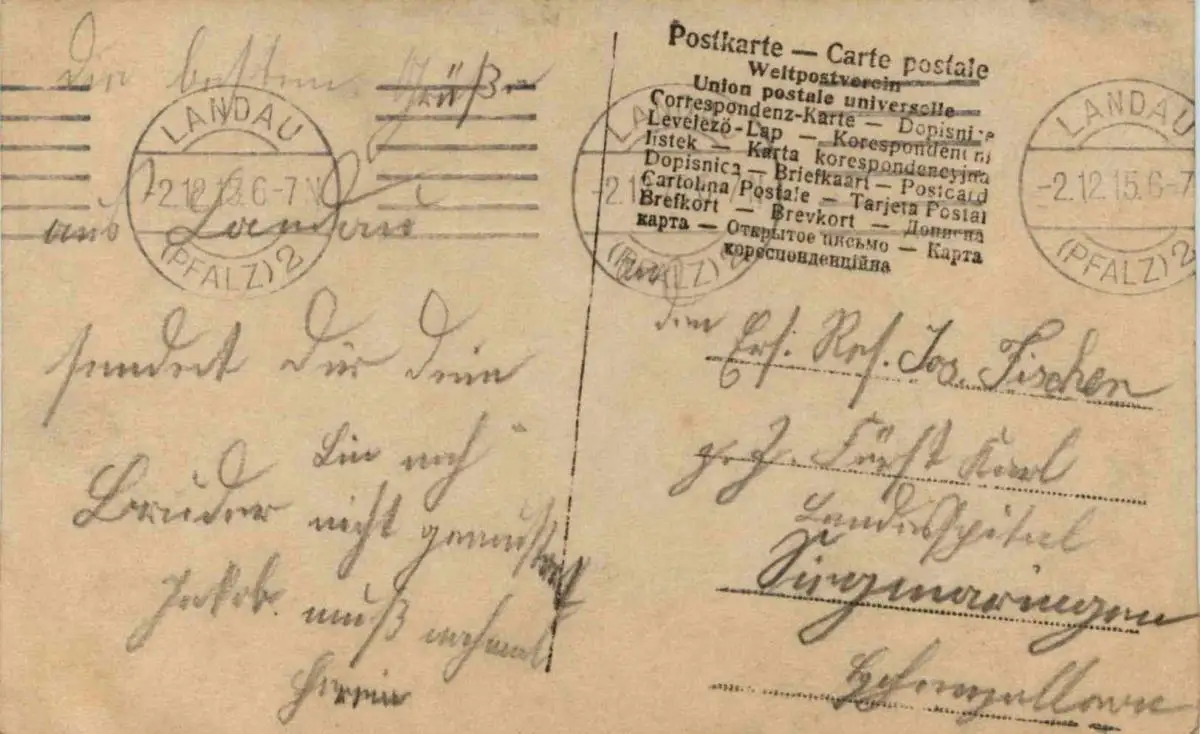 Die besten Grüße
aus Landau
sendet Dir Dein
Bruder
Jakob.
bin noch
nicht gemustert
muß nochmal
herein
LANDAU
-2.12.15.6-7 N
(PFALZ) 2
Postkarte — Carte postale
Weltpostverein
Union postale universelle
Correspondenz-Karte — Dopisnice
Levelező-Lap — Korespondenční
listek — Karta korespondencyjna
Dopisnica — Briefkaart — Postcard
Cartolina Postale — Tarjeta Postal
Brefkort — Brevkort — Дописна
карта — Открытое письмо — Карта
кореспонденційна
LANDAU
-2.12.15.6-7
(PFALZ) 2
An
den
Ers. Res. Jos. Fischer
z. Z. Fürst Karl
Landesspital
Siegmaringen
Hohenzollern